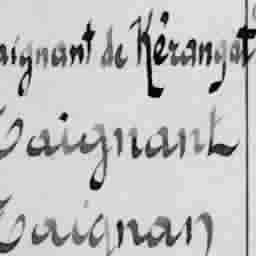 aignant de Kérangat
Taignant
Taignan